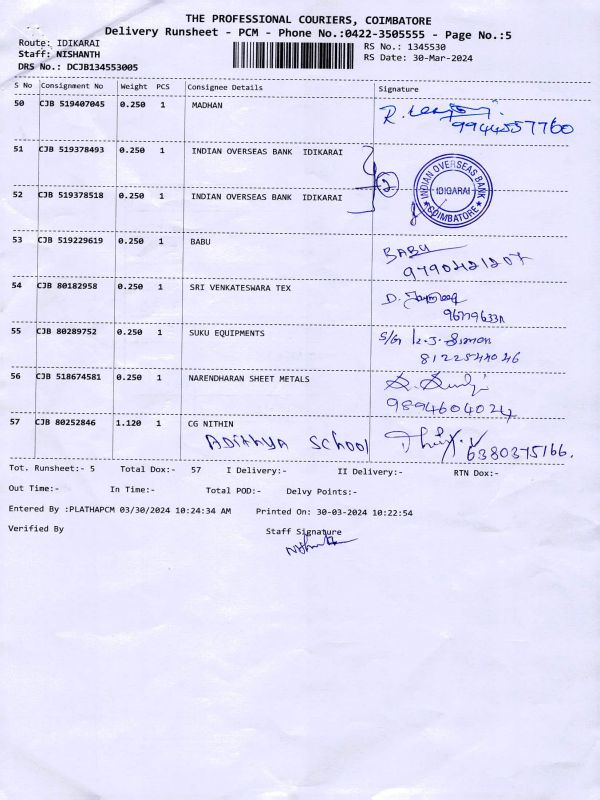 THE PROFESSIONAL COURIERS, COIMBATORE
Delivery Runsheet - PCM - Phone No.:0422-3505555 - Page No.:5
Route: IDIKARAI
RS No.: 1345530
Staff: NISHANTH
RS Date: 30-Mar-2024
DRS No.: DCJB134553005
S No Consignment No Weight PCS Consignee Details Signature
50 CJB 519407045 0.250 1 MADHAN
9944557760
51 CJB 519378493 0.250 1 INDIAN OVERSEAS BANK IDIKARAI
2
INDIAN OVERSEAS BANK
IDIGARAI
★ COIMBATORE ★
52 CJB 519378518 0.250 1 INDIAN OVERSEAS BANK IDIKARAI
53 CJB 519229619 0.250 1 BABU
BABU
9790421207
54 CJB 80182958 0.250 1 SRI VENKATESWARA TEX
55 CJB 80289752 0.250 1 SUKU EQUIPMENTS
56 CJB 518674581 0.250 1 NARENDHARAN SHEET METALS
9894604024
57 CJB 80252846 1.120 1 CG NITHIN
ADITHYA SCHOOL
6380375166.
Tot. Runsheet:- 5 Total Dox:- 57 I Delivery:- II Delivery:- RTN Dox:-
Out Time:- In Time:- Total POD:- Delvy Points:-
Entered By :PLATHAPCM 03/30/2024 10:24:34 AM Printed On: 30-03-2024 10:22:54
Verified By Staff Signature